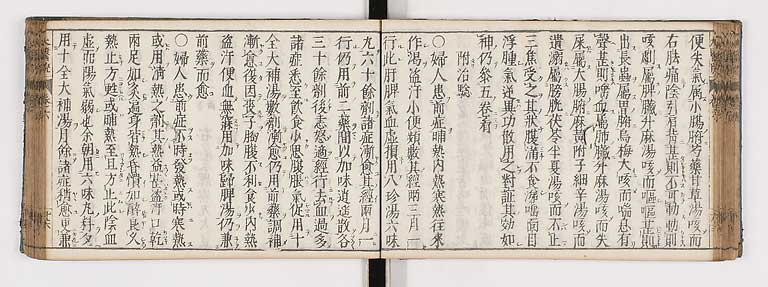 便失氣屬小腸腑芍藥甘草湯咳而
右脇痛陰引肩背甚則不可動動則
咳劇屬脾臟升麻湯咳而嘔嘔甚則
出長蟲屬胃腑烏梅丸咳而喘息有
聲甚則唾血屬肺臟升麻湯咳而失
屎屬大腸腑麻黃附子細辛湯咳而
遺溺屬膀胱茯苓半夏湯咳而不止
三焦受之其狀腹滿不食涕唾面目
浮腫氣逆異功散用之對証其効如
神仍參五卷看
附治驗
○婦人患前症晡熱内熱寒熱徃來
作渴盗汗小便頻數其經兩三月一
行此肝脾氣血虛損用八珍湯六味
丸六十餘劑諸症漸愈其經兩月一
行仍用前二藥間以加味逍遥散各
三十餘劑後恚怒適經行去血過多
諸症悉至飲食少思腹脹氣促用十
全大補湯數劑漸愈仍用前藥調補
漸愈後因喪子胸腹不利食少内熱
盗汗便血無寐用加味歸脾湯仍兼
前藥而愈
○婦人患前症不時發熱或時寒熱
或用清熱之劑其熱益甚盗汗口乾
兩足如炙遍身皆熱昏憒如醉良久
熱止方甦或晡熱至旦方止此陰血
虛而陽氣弱也余朝用六味丸料夕
用十全大補湯月餘諸症稍愈更兼